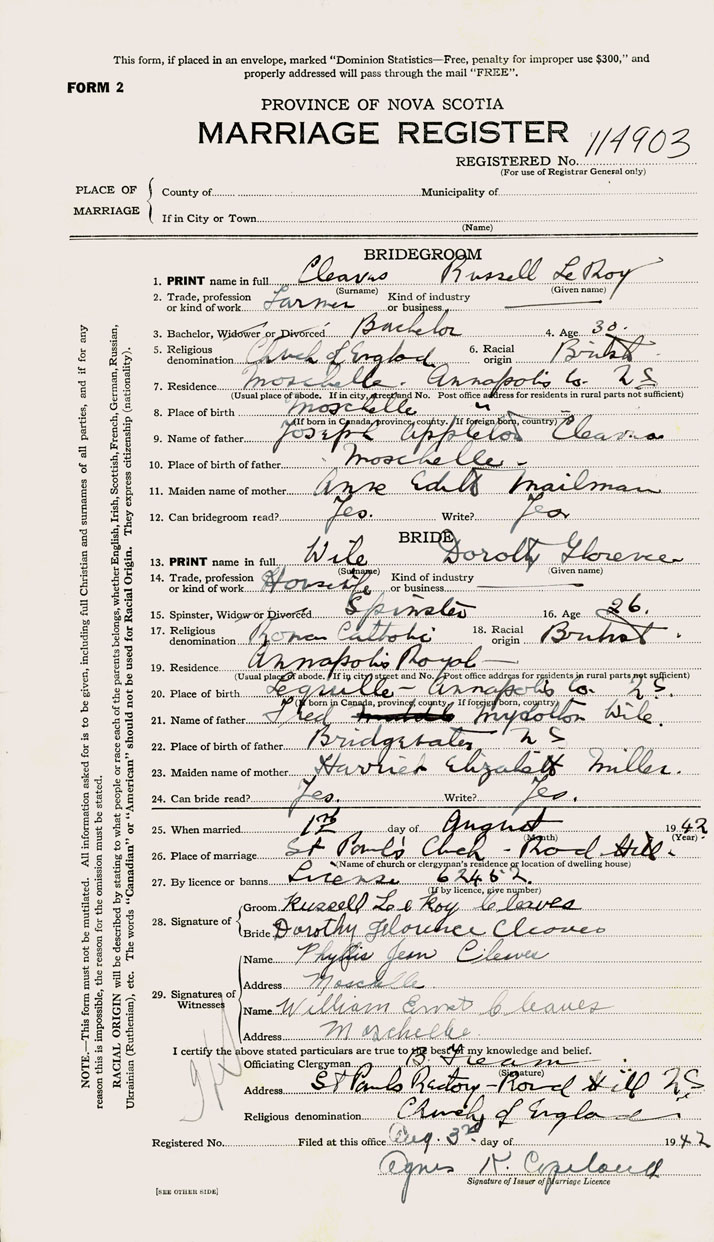 This form, if placed in an envelope, marked “Dominion Statistics—Free, penalty for improper use $300,” and
properly addressed will pass through the mail “FREE”.
FORM 2
PROVINCE OF NOVA SCOTIA
MARRIAGE REGISTER
REGISTERED No. 114903
(For use of Registrar General only)
PLACE OF MARRIAGE
County of Municipality of
If in City or Town
(Name)
BRIDEGROOM
1. PRINT name in full Cleaves Russell LeRoy
(Surname) (Given name)
2. Trade, profession or kind of work Farmer Kind of industry or business
3. Bachelor, Widower or Divorced Bachelor 4. Age 30.
5. Religious denomination Church of England 6. Racial origin British
7. Residence Moschelle. Annapolis Co. NS
(Usual place of abode. If in city, street and No. Post office address for residents in rural parts not sufficient)
8. Place of birth Moschelle "
(If born in Canada, province, county. If foreign born, country)
9. Name of father Joseph Appleton Cleaves
10. Place of birth of father Moschelle
11. Maiden name of mother Anne Edith Mailman
12. Can bridegroom read? Yes. Write? Yes
BRIDE
13. PRINT name in full Wile Dorothy Florence
(Surname) (Given name)
14. Trade, profession or kind of work Housewife Kind of industry or business
15. Spinster, Widow or Divorced Spinster 16. Age 26.
17. Religious denomination Roman Catholic 18. Racial origin British.
19. Residence Annapolis Royal
(Usual place of abode. If in city street and No. Post office address for residents in rural parts not sufficient)
20. Place of birth Lequille - Annapolis Co. NS.
(If born in Canada, province, county. If foreign born, country)
21. Name of father Fred Wile.
22. Place of birth of father Bridgewater NS
23. Maiden name of mother Harriet Elizabeth Miller.
24. Can bride read? Yes. Write? Yes.
25. When married 1st day of August 1942
(Month) (Year)
26. Place of marriage St Paul's Church - Round Hill.
(Name of church or clergyman's residence or location of dwelling house)
27. By licence or banns License 62452.
(If by licence, give number)
28. Signature of
Groom Russell LeRoy Cleaves
Bride Dorothy Florence Cleaves
29. Signatures of Witnesses
Name Phyllis Jean Cleaves
Address Moschelle
Name William Ernst Cleaves
Address Moschelle.
I certify the above stated particulars are true to the best of my knowledge and belief.
Officiating Clergyman B.
(Signature)
Address St Pauls Rectory - Round Hill NS
Religious denomination Church of England
Registered No. Filed at this office Aug. 3rd day of 1942
Agnes K. Copeland
Signature of Issuer of Marriage Licence
[SEE OTHER SIDE]
NOTE.—This form must not be mutilated. All information asked for is to be given, including full Christian and surnames of all parties, and if for any
reason this is impossible, the reason for the omission must be stated.
RACIAL ORIGIN will be described by stating to what people or race each of the parents belongs, whether English, Irish, Scottish, French, German, Russian,
Ukrainian (Ruthenian), etc. The words “Canadian” or “American” should not be used for Racial Origin. They express citizenship (nationality).